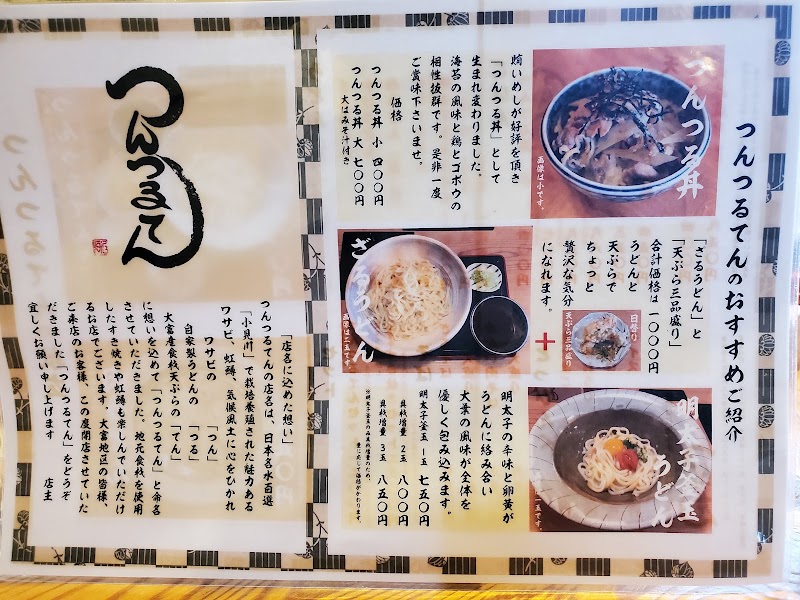 つんつるてんのおすすめご紹介
つんつる丼
画像は小です。
賄いめしが好評を頂き
「つんつる丼」として
生まれ変わりました。
海苔の風味と鶏とゴボウの
相性抜群です。是非一度
ご賞味下さいませ。
価格
つんつる丼 小 四〇〇円
つんつる丼 大 七〇〇円
大はみそ汁付き
「ざるうどん」と
「天ぷら三品盛り」
合計価格は一〇〇〇円
うどんと
天ぷらで
ちょっと
贅沢な気分
になれます。
日替り
天ぷら三品盛り
+
ざるうどん
画像は二玉です。
明太子釜玉
うどん
玉です。
明太子の辛味と卵黄が
うどんに絡み合い
大葉の風味が全体を
優しく包み込みます。
明太子釜玉 1玉 七五〇円
具材増量 2玉 八〇〇円
具材増量 3玉 八五〇円
※明太子釜玉のみ具材増量のため、
量に応じて価格がかわります。
つんつるてん
「店名に込めた想い」
つんつるてんの店名は、日本名水百選
「小見川」で栽培養殖された魅力ある
ワサビ、虹鱒、気候風土に心をひかれ
ワサビの 「つん」
自家製うどんの 「つる」
大富産食材天ぷらの 「てん」
に想いを込めて「つんつるてん」と命名
させていただきました。地元食材を使用
したすき焼きや虹鱒も楽しんでいただけ
るお店でございます。大富地区の皆様、
ご来店のお客様、この度開店させていた
だきました「つんつるてん」をどうぞ
宜しくお願い申し上げます
店主